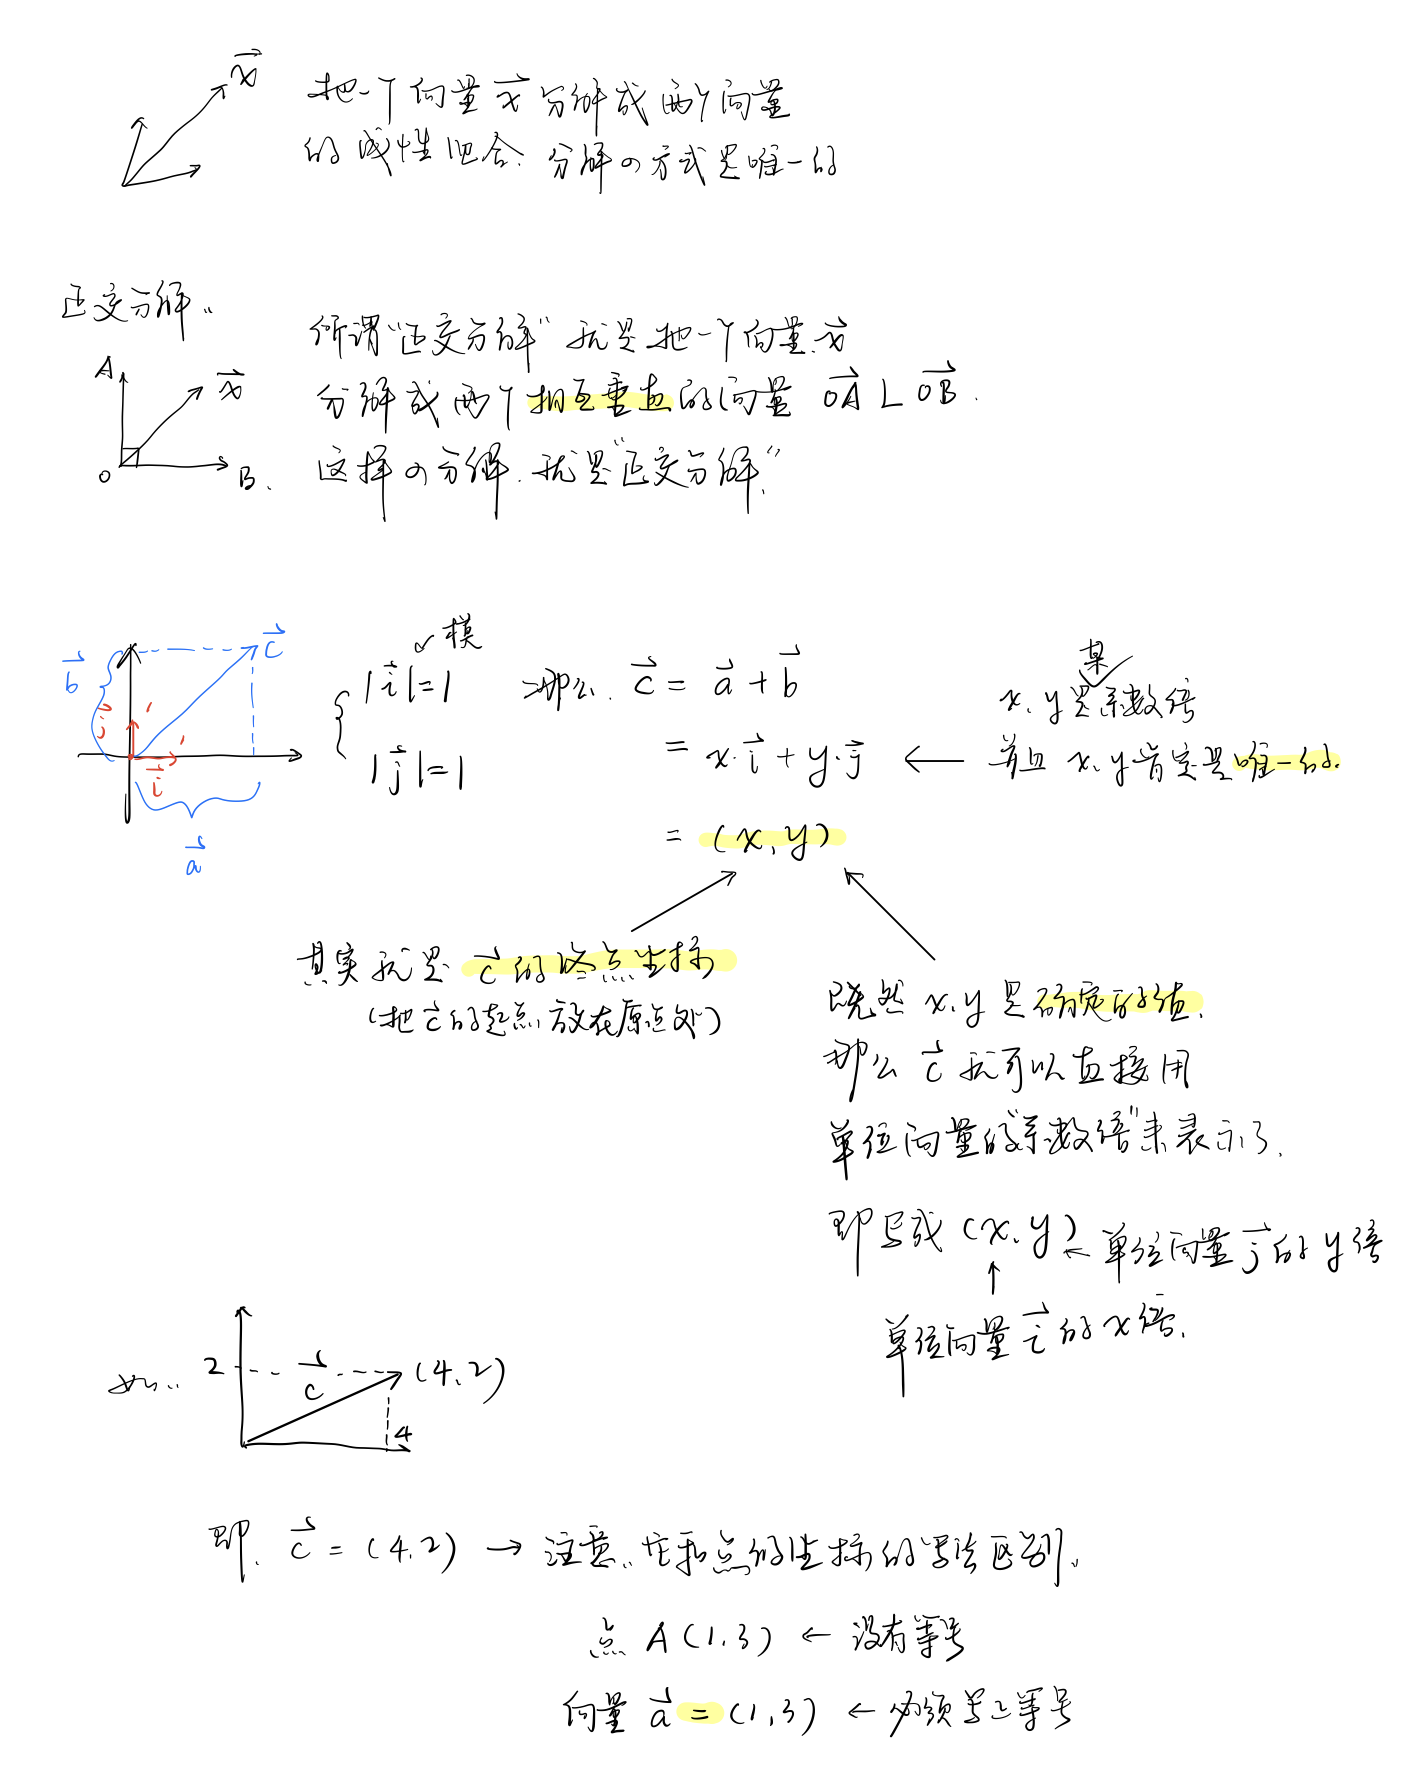 x⃗
把一个向量 x⃗ 分解成两个向量
的线性组合. 分解の方式是唯一的
正交分解:
所谓"正交分解" 就是把一个向量 x⃗
A
x⃗
分解成两个相互垂直的向量 OA⃗ ⊥ OB⃗.
O
B.
这样の分解. 就是"正交分解."
c⃗
b⃗
j⃗
1
1
i⃗
a⃗
模
|i⃗|=1
|j⃗|=1
那么. c⃗ = a⃗ + b⃗
= x·i⃗ + y·j⃗
= (x, y)
某
x, y是系数倍
并且 x, y肯定是唯一的.
其实就是 c⃗ 的终点坐标
(把 c⃗ 的起点放在原点处)
既然 x, y 是确定的值.
那么 c⃗ 就可以直接用
单位向量的"系数倍"来表示了.
即写成 (x, y) ← 单位向量 j⃗ 的 y倍
↑
单位向量 i⃗ 的 x倍.
如:
2
c⃗
(4, 2)
4
即. c⃗ = (4, 2) → 注意: 它和点的坐标的写法区别.
点 A (1, 3) ← 没有等号
向量 a⃗ = (1, 3) ← 必须写上等号